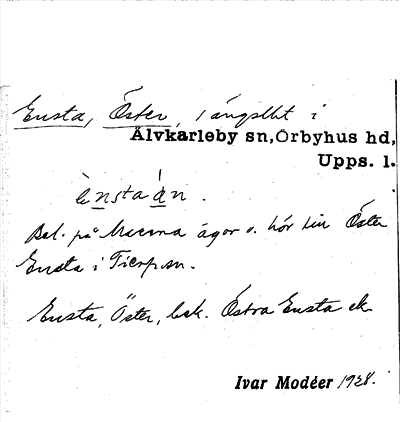 Ensta, Öster, i ängsllt i
Älvkarleby sn, Örbyhus hd,
Upps. l.
ènsta àn.
Bel. på Marma ägor o. hör till Öster
Ensta i Tierp sn.
Ensta, Öster, bek. Östra Ensta ek
Ivar Modéer 1928.